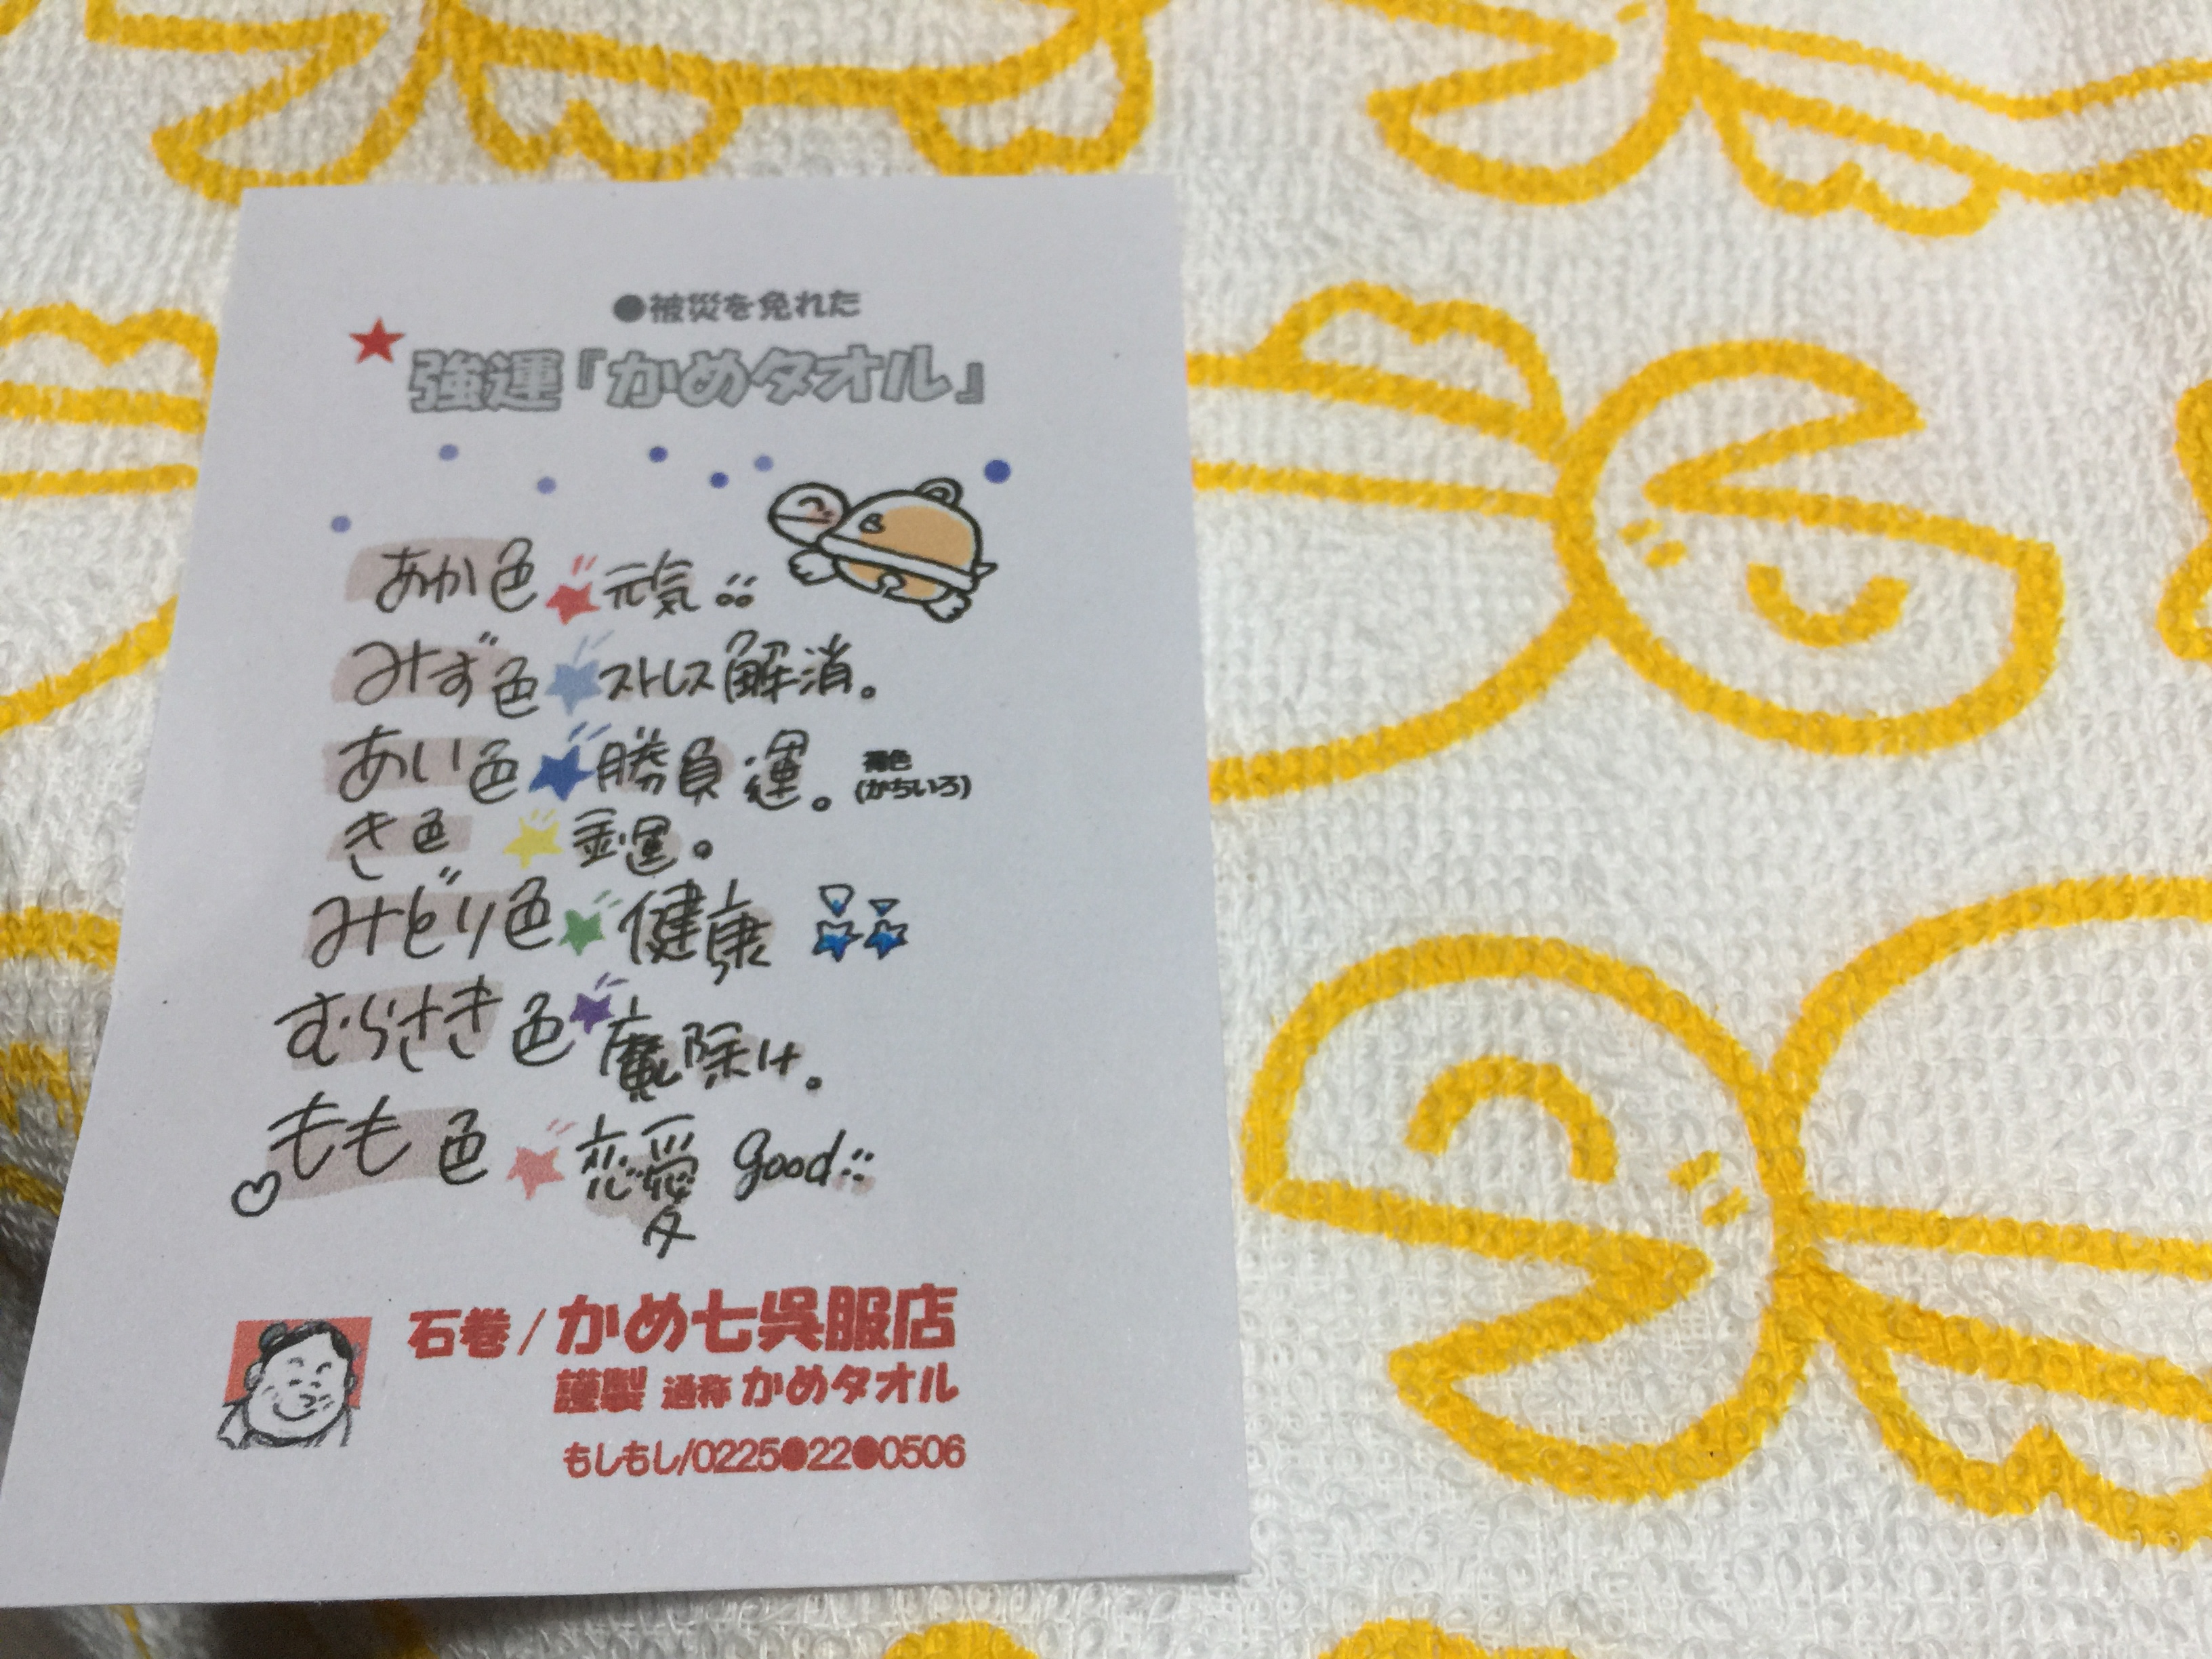 ●被災を免れた
★強運『かめタオル』
あか色★元気
みず色★ストレス解消。
あい色★勝負運。褐色(かちいろ)
き色★金運。
みどり色★健康
むらさき色★魔除け。
もも色★恋愛 good
石巻/かめ七呉服店
謹製 通称 かめタオル
もしもし/0225●22●0506